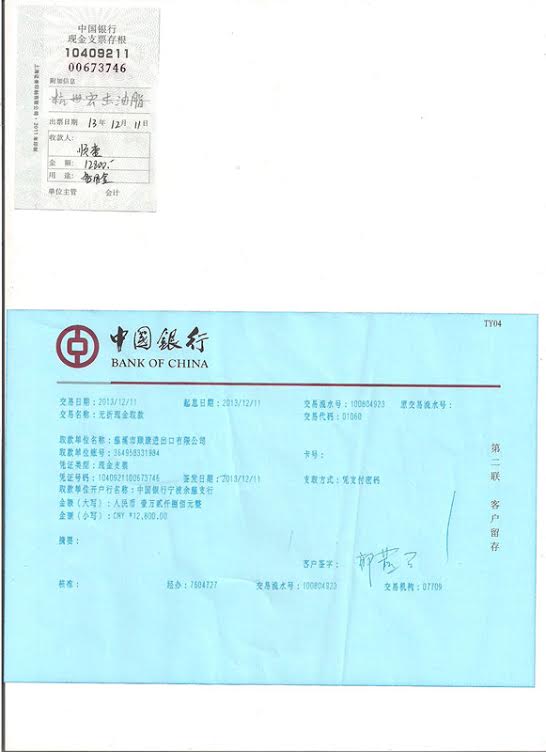 中国银行
现金支票存根
10409211
00673746
附加信息
出票日期 13年12月11日
收款人:
金 额: 12800.-
用 途: 备用金
单位主管 会计
中国银行
BANK OF CHINA
TY04
交易日期:2013/12/11 起息日期:2013/12/11 交易流水号:100804923 原交易流水号:
交易名称:无折现金取款 交易代码:01060
取款单位名称:慈溪市顺康进出口有限公司
取款单位账号:364958331984 卡号:
凭证类型:现金支票
凭证号码:1040921100673746 签发日期:2013/12/11 支取方式:凭支付密码
取款单位开户行名称:中国银行宁波余慈支行
金额(大写):人民币 壹万贰仟捌佰元整
金额(小写):CNY ¥12,800.00
摘要:
客户签字:
核准: 经办:7684727 交易流水号:100804923 交易机构:07709
第二联 客户留存